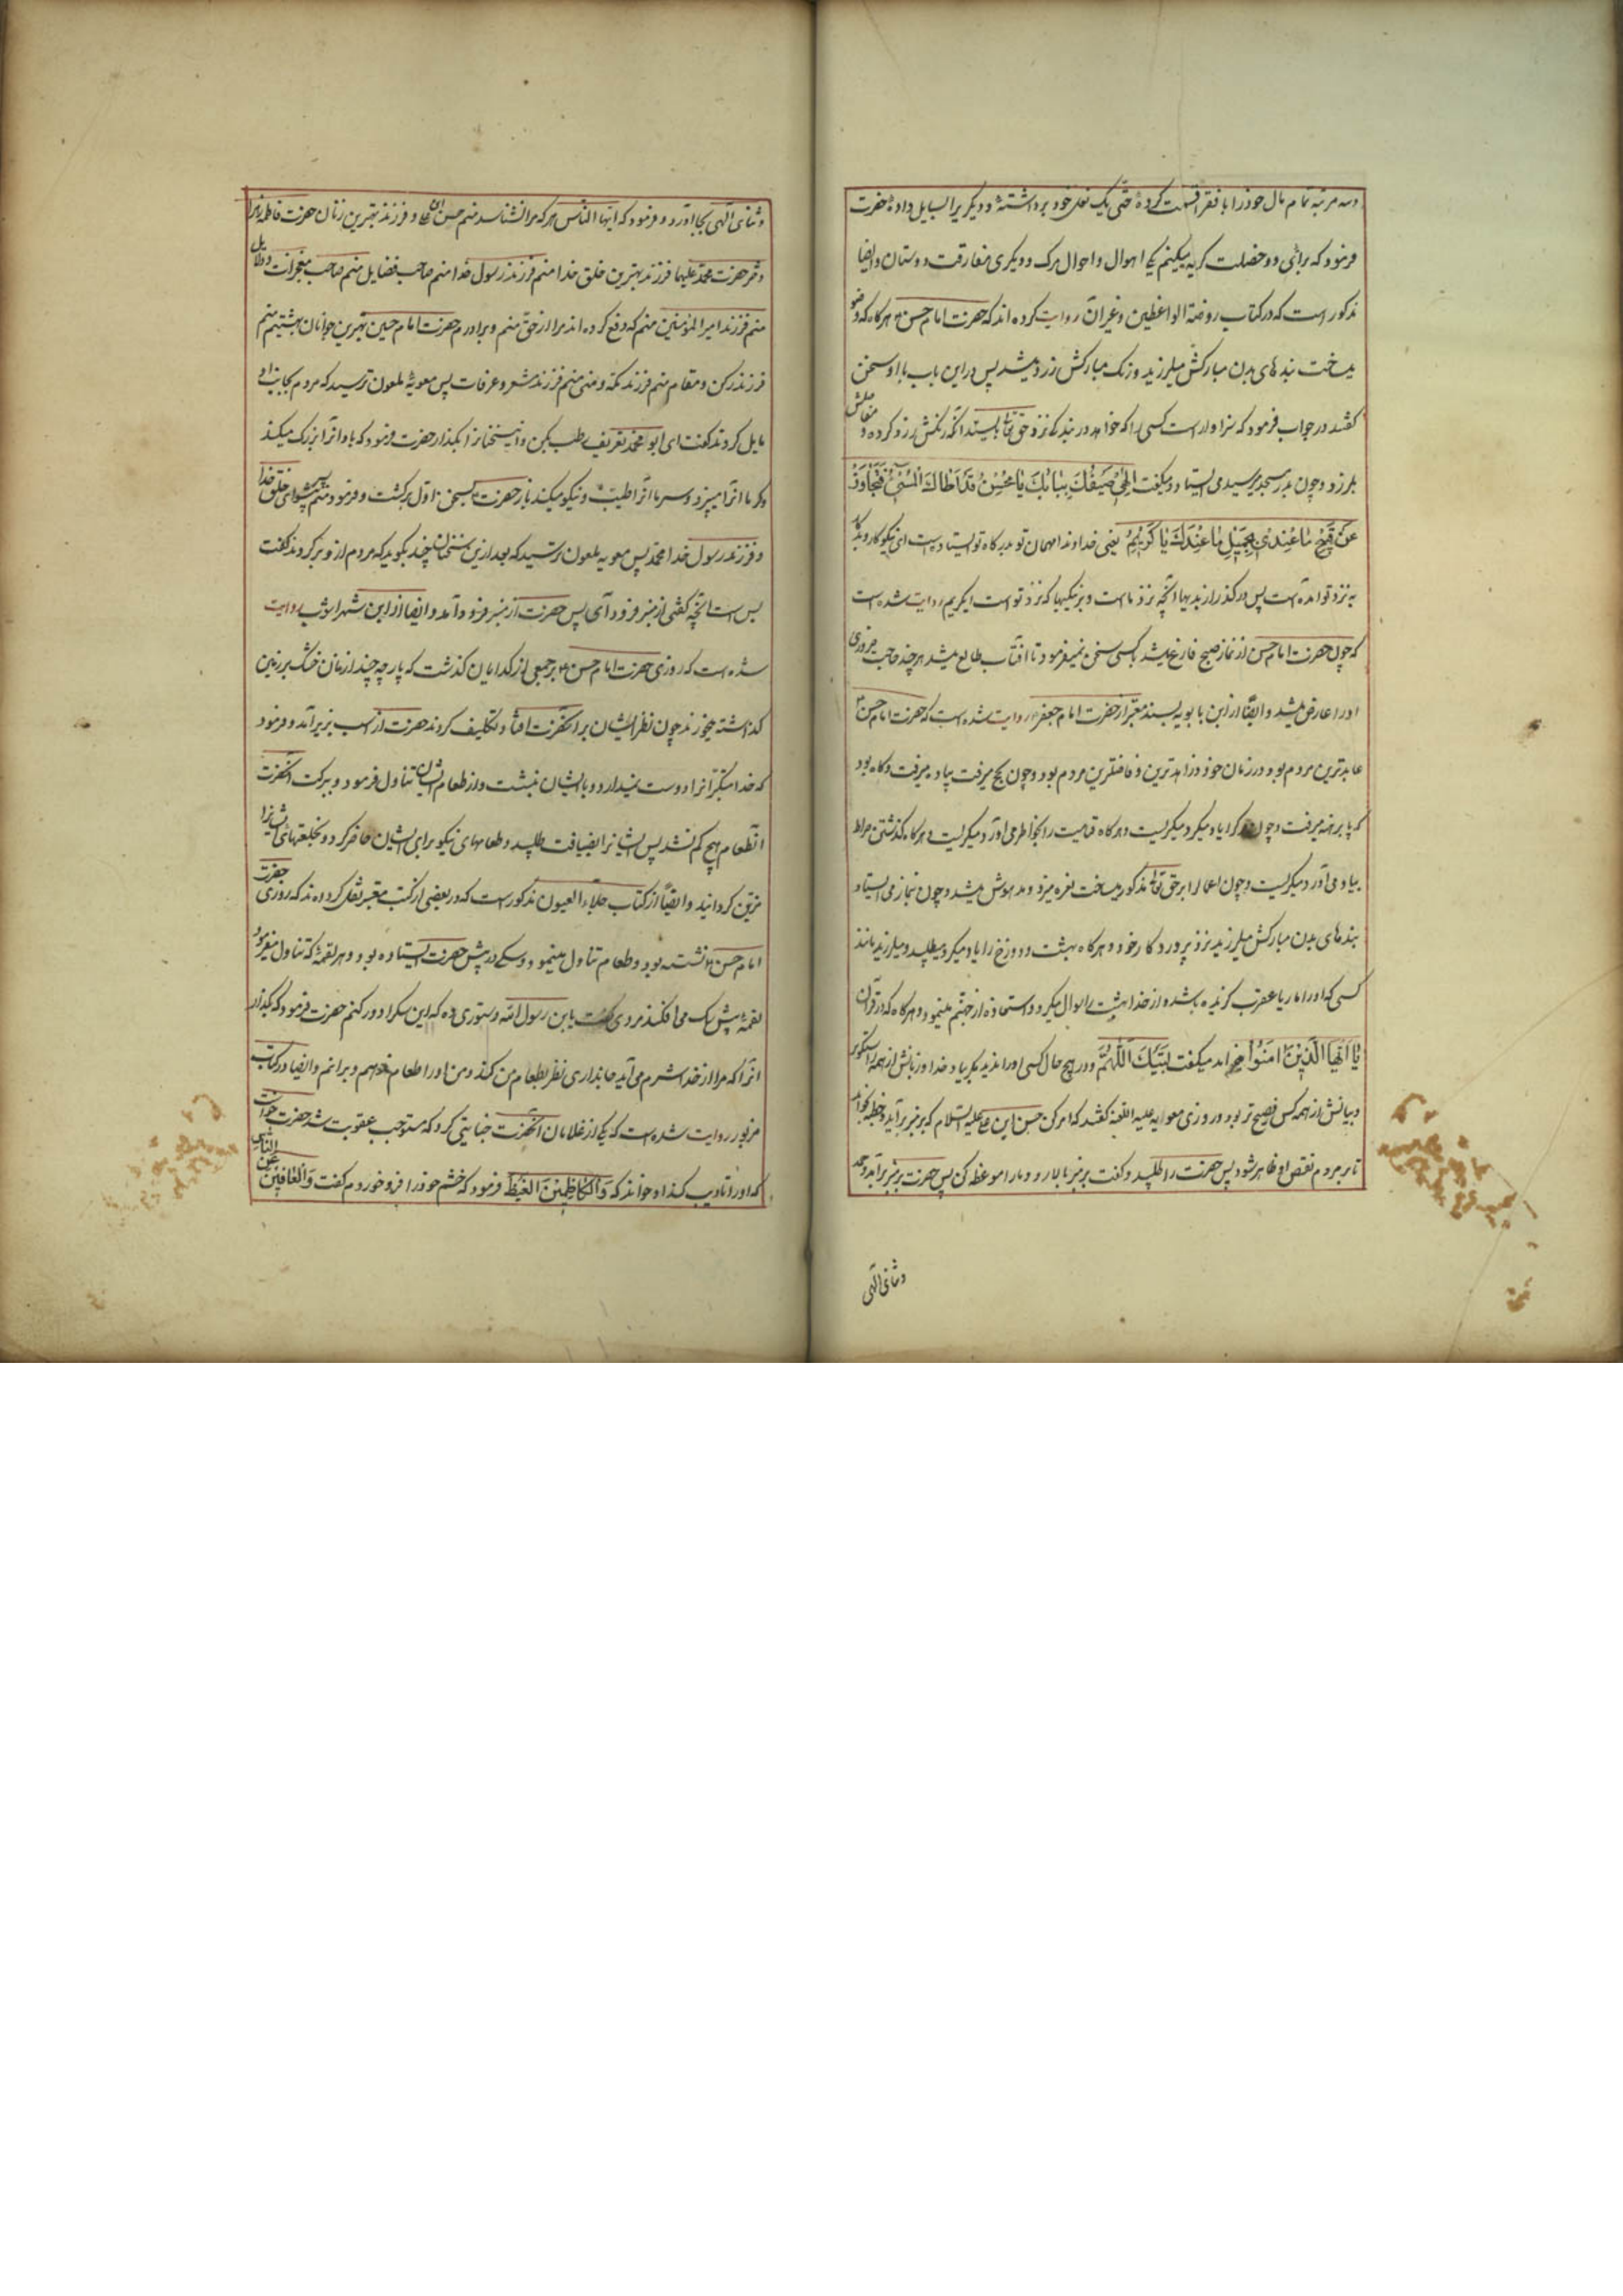 و سه مرتبه تمام مال خود را با فقرا قسمت کرده حتی یک نعل خود برداشته و دیگر یرا بسایل داده حضرت
فرمود که برای دو خصلت گریه میکنم یکی اهوال و احوال مرک و دیگری مفارقت دوستان و ایضا
مذکور است که در کتاب روضة الواعظین و غیر ان روایت کرده اند که حضرت امام حسن ع هر کاه که وضو
میساخت بند های بدن مبارکش میلرزید و رنک مبارکش زرد میشد پس در این باب با او سخن
گفتند در جواب فرمود که سزاوار است کسی را که خواهد در بندکی نزد حق تعالی بایستد آنکه رنکش زرد کردد و مفاصلش
بلرزد و چون بدر مسجد میرسید می ایستاد و میکفت الهی ضیفک ببابک یا محسن قد اتاک المسیء فتجاوز
عن قبیح ما عندی بجمیل ما عندک یا کریم یعنی خداوندا مهمان تو بدرکاه تو ایستاده است ای نیکوکار و بدکار
به نزد تو امده است پس در کذر از بدیها آنچه نزد ما است و بر نیکیها که نزد تو است ایکریم روایت شده است
که چون حضرت امام حسن از نماز صبح فارغ میشد با کسی سخن نمیفرمود تا افتاب طالع میشد هر چند حاجت ضروری
او را عارض میشد و ایضا از ابن بابویه بسند معتبر از حضرت امام جعفر روایت شده است که حضرت امام حسن ع
عابدترین مردم بود در زمان خود و زاهد ترین و فاضلترین مردم بود و چون بحج میرفت پیاده میرفت و کاه بود
که پا برهنه میرفت و چون مرک را یاد میکرد میکریست و هر کاه قیامت را بخاطر می اورد میکریست و هر کاه گذشتن صراط
بیاد می آورد میکریست و چون اعمال را بر حق تعالی مذکور میساخت نعره میزد و مدهوش میشد و چون بنماز می ایستاد
بندهای بدن مبارکش میلرزید نزد پروردکار خود و هر کاه بهشت و دوزخ را یاد میکرد میطپید و میلرزید مانند
کسی که او را مار یا عقرب گزیده باشد و از خدا بهشت را سوال میکرد و استعاذه از جهنم مینمود و هر کاه که در قرآن
یا ایها الذین امنوا میخواند میکفت لبیک اللهم و در هیچ حال کسی او را ندید مکر بیاد خدا و زبانش از همه راستکوتر
و بیانش از همه کس فصیح تر بود و روزی معوایه علیه اللعنه گفتند که امر کن حسن ابن علی علیه السلام که بر منبر برآید و خطبه بخواند
تا بر مردم نقص او ظاهر شود پس حضرت را طلبید و گفت بر منبر بالا رو و مارا موعظه کن پس حضرت بر منبر برآمد و حمد
و ثنای الهی
و ثنای الهی بجا اورد و فرمود که ایها الناس هر که مرا نشناسد منم حسن ابن علی و فرزند بهترین زنان حضرت فاطمه زهرا
دختر حضرت محمد علیها فرزند بهترین خلق خدا منم فرزند رسول خدا منم صاحب فضایل منم صاحب معجزات و دلایل
منم فرزند امیر المؤمنین منم که دفع کرده اند مرا از حق منم و برادرم حضرت امام حسین بهترین جوانان بهشتیم منم
فرزند رکن و مقام منم فرزند مکه و منی منم فرزند مشعر و عرفات پس معویهٔ ملعون ترسید که مردم بجانب او
مایل کردند گفت ای ابو محمد تعریف رطب بکن و این سخنانرا بگذار حضرت فرمود که باد آنرا بزرک میکند
و کرما انرا میپزد و سرما آنرا طیب و نیکو میکند باز حضرت بسخن اول برگشت و فرمود منم پیشوای خلق خدا
و فرزند رسول خدا محمد پس معویه ملعون ترسید که بعد از این سخنان چند بگوید که مردم از و بر کردند گفت
بس است آنچه کفتی از منبر فرود آی پس حضرت از منبر فرود آمد و ایضا از ابن شهراشوب روایت
شده است که روزی حضرت امام حسن ع بر جمعی از کدایان گذشت که پارچه چند از نان خشک بر زمین
گذاشته میخوردند چون نظر ایشان بر آنحضرت افتاد تکلیف کردند حضرت از اسب بزیر آمد و فرمود
که خدا متکبرانرا دوست نمیدارد و با ایشان بنشست و از طعام ایشان تناول فرمود و ببرکت آنحضرت
آنطعام هیچ کم نشد پس ایشانرا بضیافت طلبید و طعامهای نیکو برای ایشان حاضر کرد و بخلعتهای ایشانرا
مزین کردانید و ایضا از کتاب جلاء العیون مذکور است که در بعضی از کتب معتبر نقل کرده اند که روزی حضرت
امام حسن ع نشسته بود و طعام تناول مینمود و سکی در پیش حضرت ایستاده بود و هر لقمه که تناول میفرمود
لقمهٔ پیش سک می افکند مردی گفت یا بن رسول الله دستوری ده که این سکرا دور کنم حضرت فرمود که بگذار
آنرا که مرا از خدا شرم می آید جانداری نظر بطعام من کند و من او را طعام ندهم و برانم و ایضا در کتاب
مزبور روایت شده است که یکی از غلامان آنحضرت خیانتی کرد که مستوجب عقوبت شد حضرت خواست
که او را تادیب کند او خواند که والکاظمین الغیظ فرمود که خشم خود را فرو خوردم گفت والعافین عن الناس